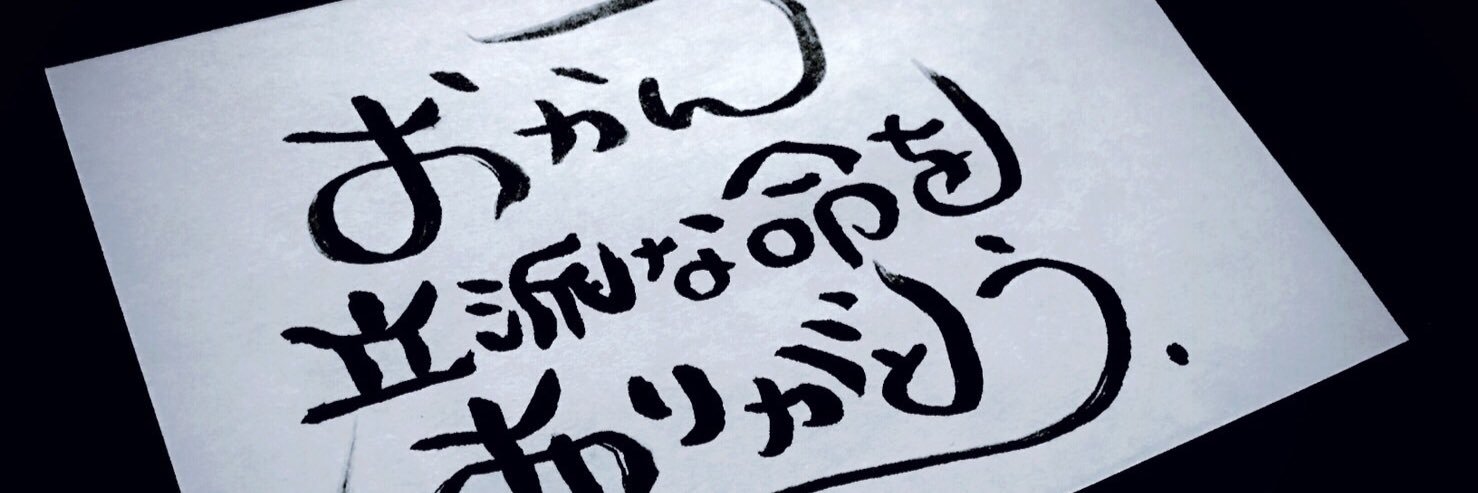 おかん
立派な命を
ありがとう.